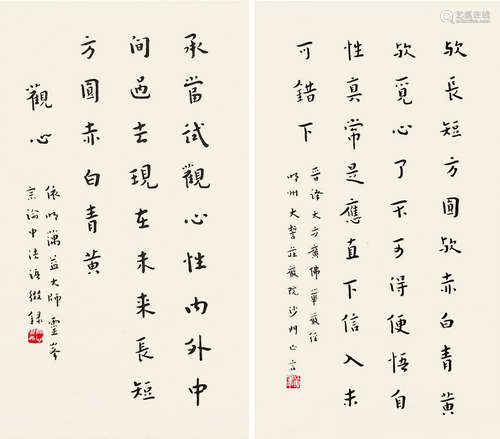 欤長短方圓欤赤白青黃
欤覓心了不可得便悟自
性真常是應直下信入未
可錯下
晉譯大方廣佛華嚴經
明州大誓莊嚴院沙門
承當試觀心性內外中
間過去現在未來長短
方圓赤白青黃
觀心
依明蕅益大師靈峯
宗論中法語綴錄